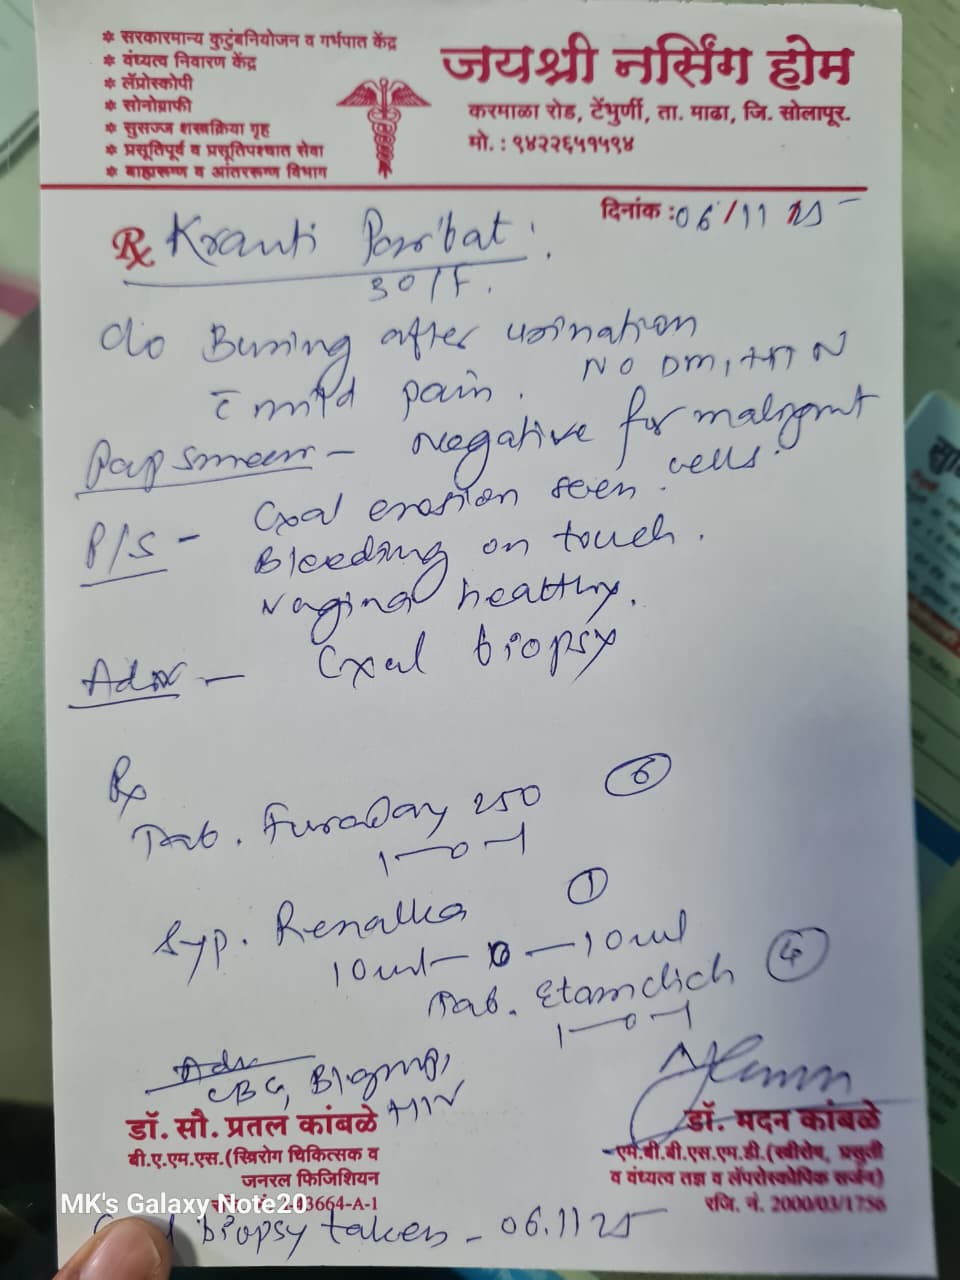 ❉ सरकारमान्य कुटुंबनियोजन व गर्भपात केंद्र
❉ वंध्यत्व निवारण केंद्र
❉ लॅप्रोस्कोपी
❉ सोनोग्राफी
❉ सुसज्ज शस्त्रक्रिया गृह
❉ प्रसूतिपूर्व व प्रसूतिपश्चात सेवा
❉ बाह्यरूग्ण व आंतररूग्ण विभाग
जयश्री नर्सिंग होम
करमाळा रोड, टेंभुर्णी, ता. माढा, जि. सोलापूर.
मो. : ९४२२६५१५९४
दिनांक :06/11 25
Rx Kranti
30/F.
c/o Burning after urination
c mild pain. No DM, HTN
Pap smear - Negative for malignant cells.
P/S - Cxal erosion seen.
Bleeding on touch.
Vagina healthy.
Adv - Cxal biopsy
Rx
Tab. Furaday 250 (6)
1-0-1
Syp. Renalka (1)
10ml - 0 - 10ml
Tab.
1-0-1
Adv
CBC, HIV
डॉ. सौ. प्रतल कांबळे
बी.ए.एम.एस.(स्त्रिरोग चिकित्सक व
जनरल फिजिशियन
3664-A-1
डॉ. मदन कांबळे
एम.बी.बी.एस.एम.डी.(स्त्रीरोग, प्रसुती
व वंध्यत्व तज्ञ व लॅपरोस्कोपिक सर्जन)
रजि. नं. 2000/03/1756
MK's Galaxy Note20
biopsy taken - 06.11 25